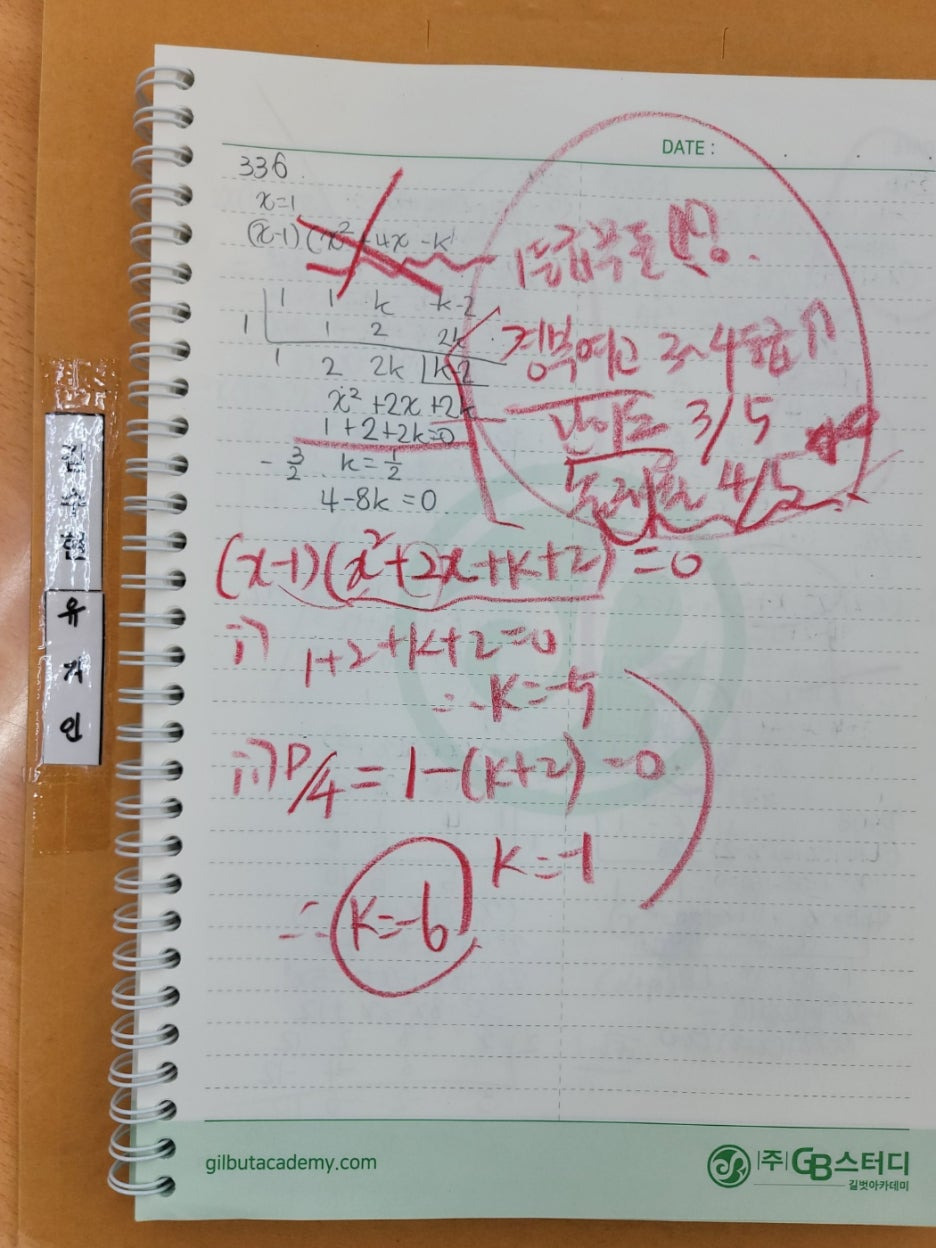 DATE :
336
x=1
(x-1)(x²+4x-k
1 1 k k-2
1 1 2 2k
1 2 2k k-2
x²+2x+2k
1+2+2k=0
-3/2 k=1/2
4-8k=0
경북여고 3~4등급
난이도 3/5
출제율 4/5
(x-1)(x²+2x+k+2)=0
i) 1+2+k+2=0
∴k=-5
ii) D/4=1-(k+2)=0
k=-1
∴k=-6
유
지
인
gilbutacademy.com
(주) GB스터디
길벗아카데미